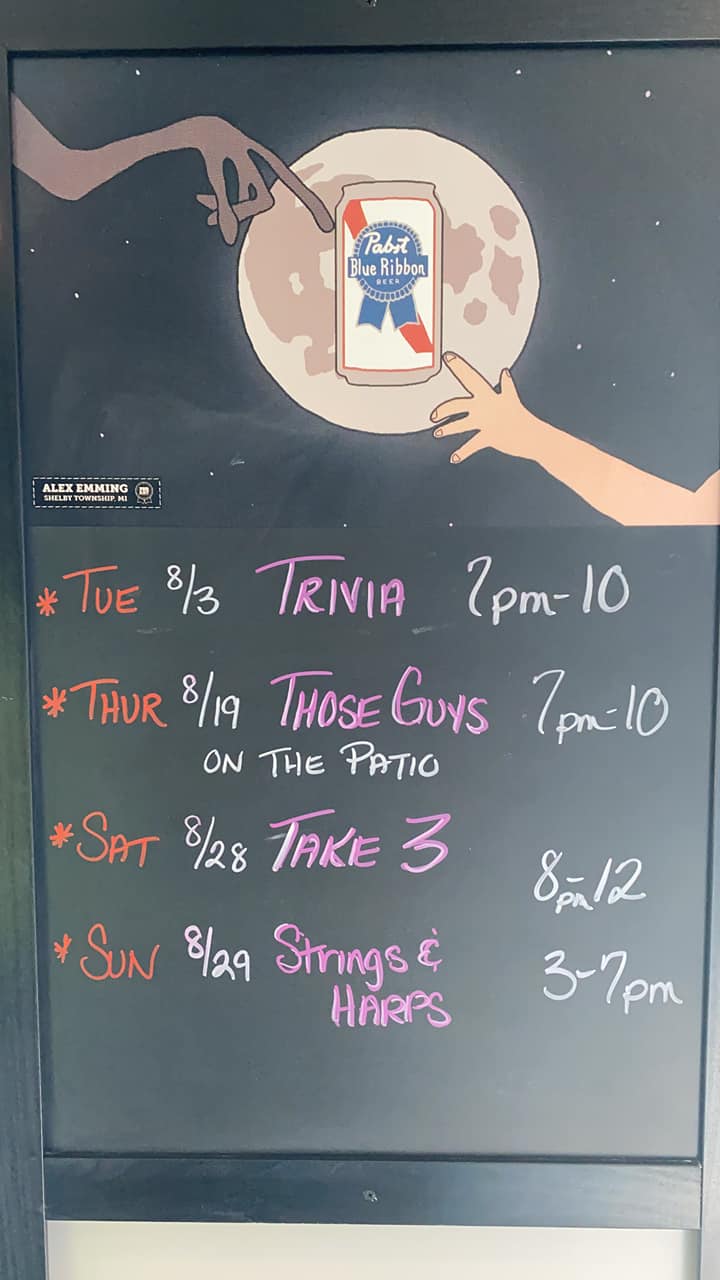 Pabst
Blue Ribbon
BEER
ALEX EMMING
SHELBY TOWNSHIP, MI
* TUE 8/3 TRIVIA 7pm-10
* THUR 8/19 THOSE GUYS 7pm-10
ON THE PATIO
* SAT 8/28 TAKE 3 8pm-12
* SUN 8/29 Strings & 3-7pm
HARPS